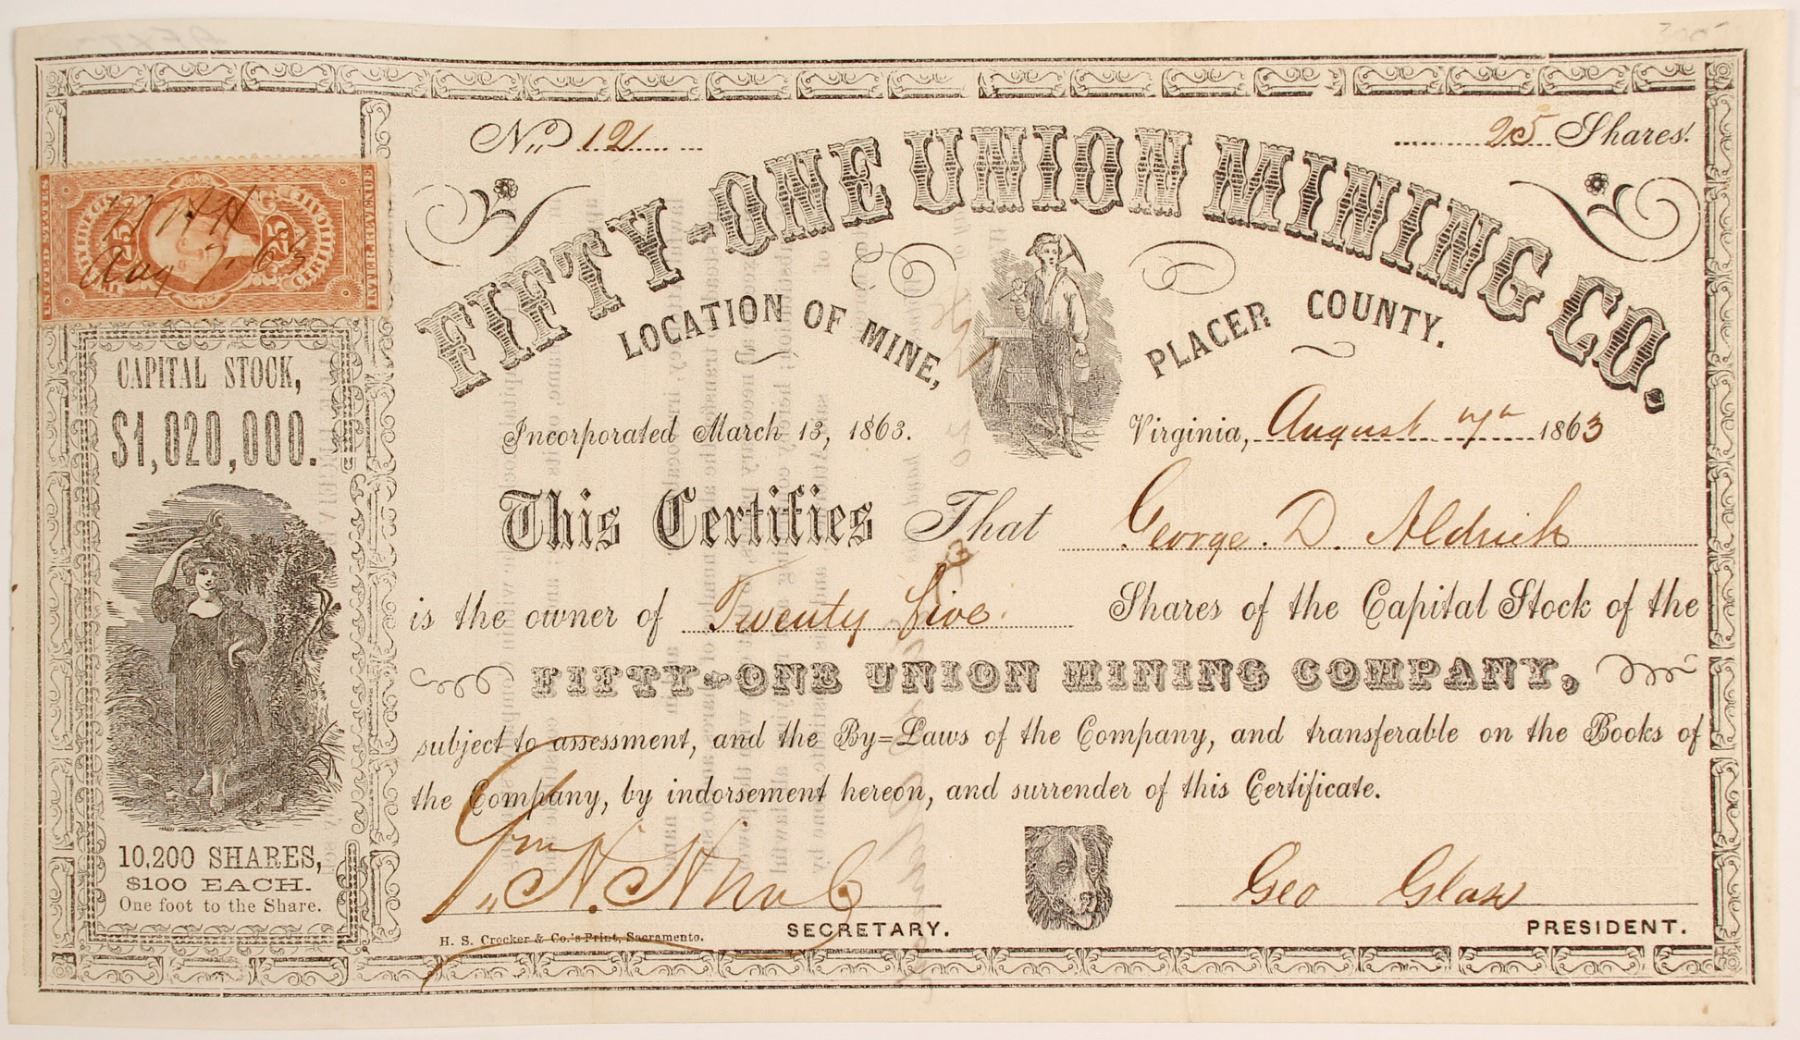 No 121
25 Shares.
FIFTY-ONE UNION MINING CO.
LOCATION OF MINE, PLACER COUNTY.
Incorporated March 13, 1863.
Virginia, August 7th 1863
This Certifies That George. D. Aldrich
is the owner of Twenty five Shares of the Capital Stock of the
FIFTY-ONE UNION MINING COMPANY,
subject to assessment, and the By=Laws of the Company, and transferable on the Books of
the Company, by indorsement hereon, and surrender of this Certificate.
Wm H.
SECRETARY.
Geo
PRESIDENT.
H. S. Crocker & Co.'s Print, Sacramento.
UNITED STATES
INTER. REVENUE
25
25
Aug 7 63
CAPITAL STOCK,
$1,020,000.
10,200 SHARES,
$100 EACH.
One foot to the Share.